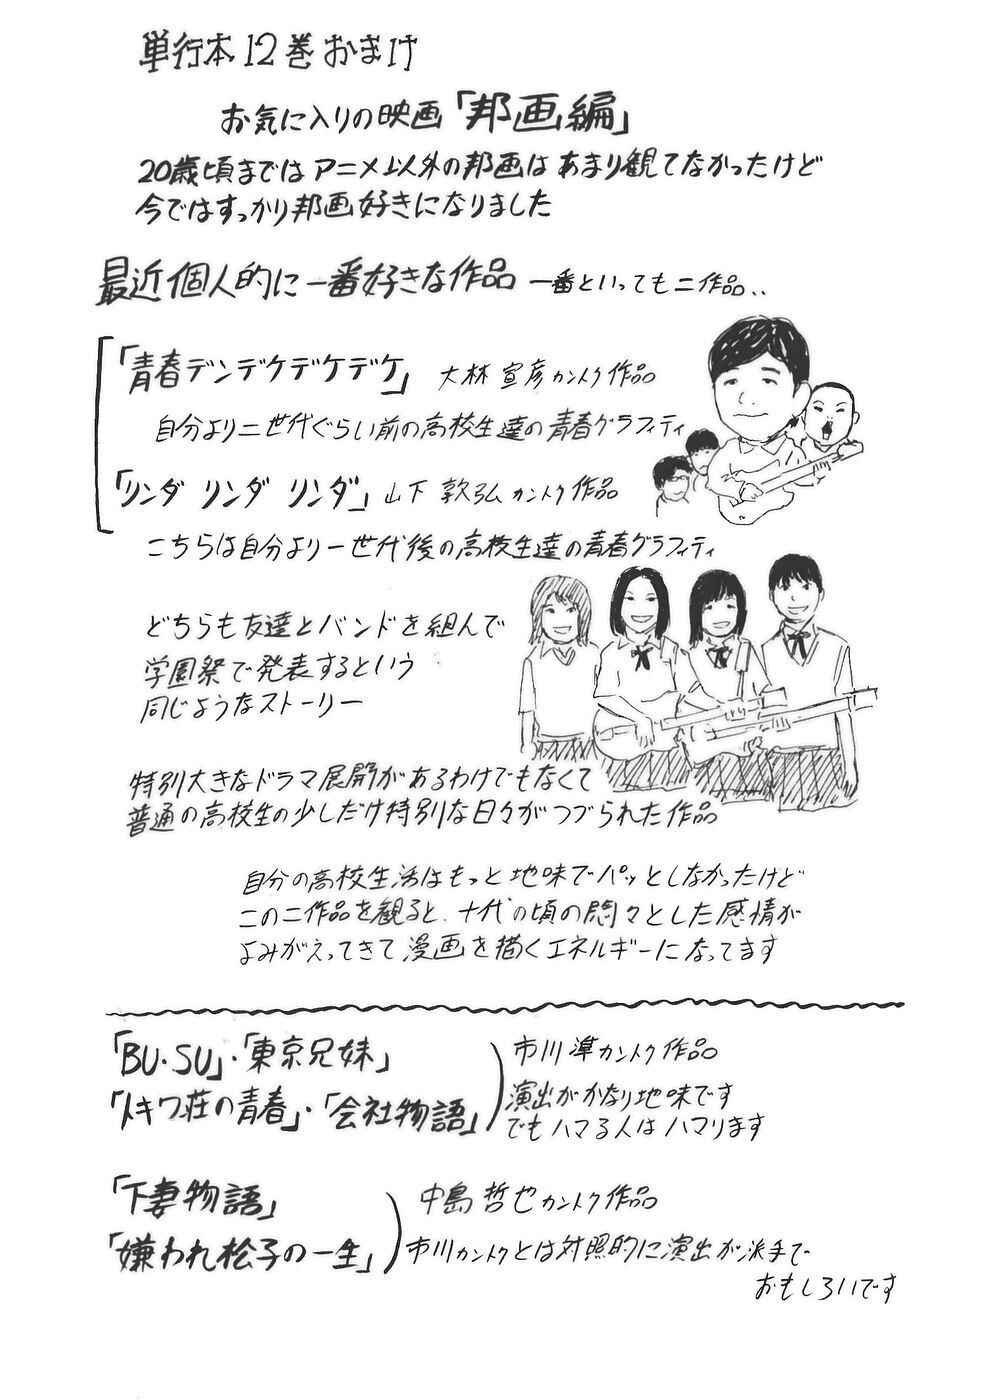 単行本12巻おまけ
お気に入りの映画「邦画編」
20歳頃まではアニメ以外の邦画はあまり観てなかったけど
今ではすっかり邦画好きになりました
最近個人的に一番好きな作品 一番といっても二作品..
「青春デンデケデケデケ」 大林宣彦カントク作品
自分より二世代ぐらい前の高校生達の青春グラフィティ
「リンダ リンダ リンダ」山下敦弘カントク作品
こちらは自分より一世代後の高校生達の青春グラフィティ
どちらも友達とバンドを組んで
学園祭で発表するという
同じようなストーリー
特別大きなドラマ展開があるわけでもなくて
普通の高校生の少しだけ特別な日々がつづられた作品
自分の高校生活はもっと地味でパッとしなかったけど
この二作品を観ると、十代の頃の悶々とした感情が
よみがえってきて漫画を描くエネルギーになってます
「BU・SU」・「東京兄妹」
「トキワ荘の青春」・「会社物語」
市川準カントク作品
演出がかなり地味です
でもハマる人はハマります
「下妻物語」
「嫌われ松子の一生」
中島哲也カントク作品
市川カントクとは対照的に演出が派手で
おもしろいです